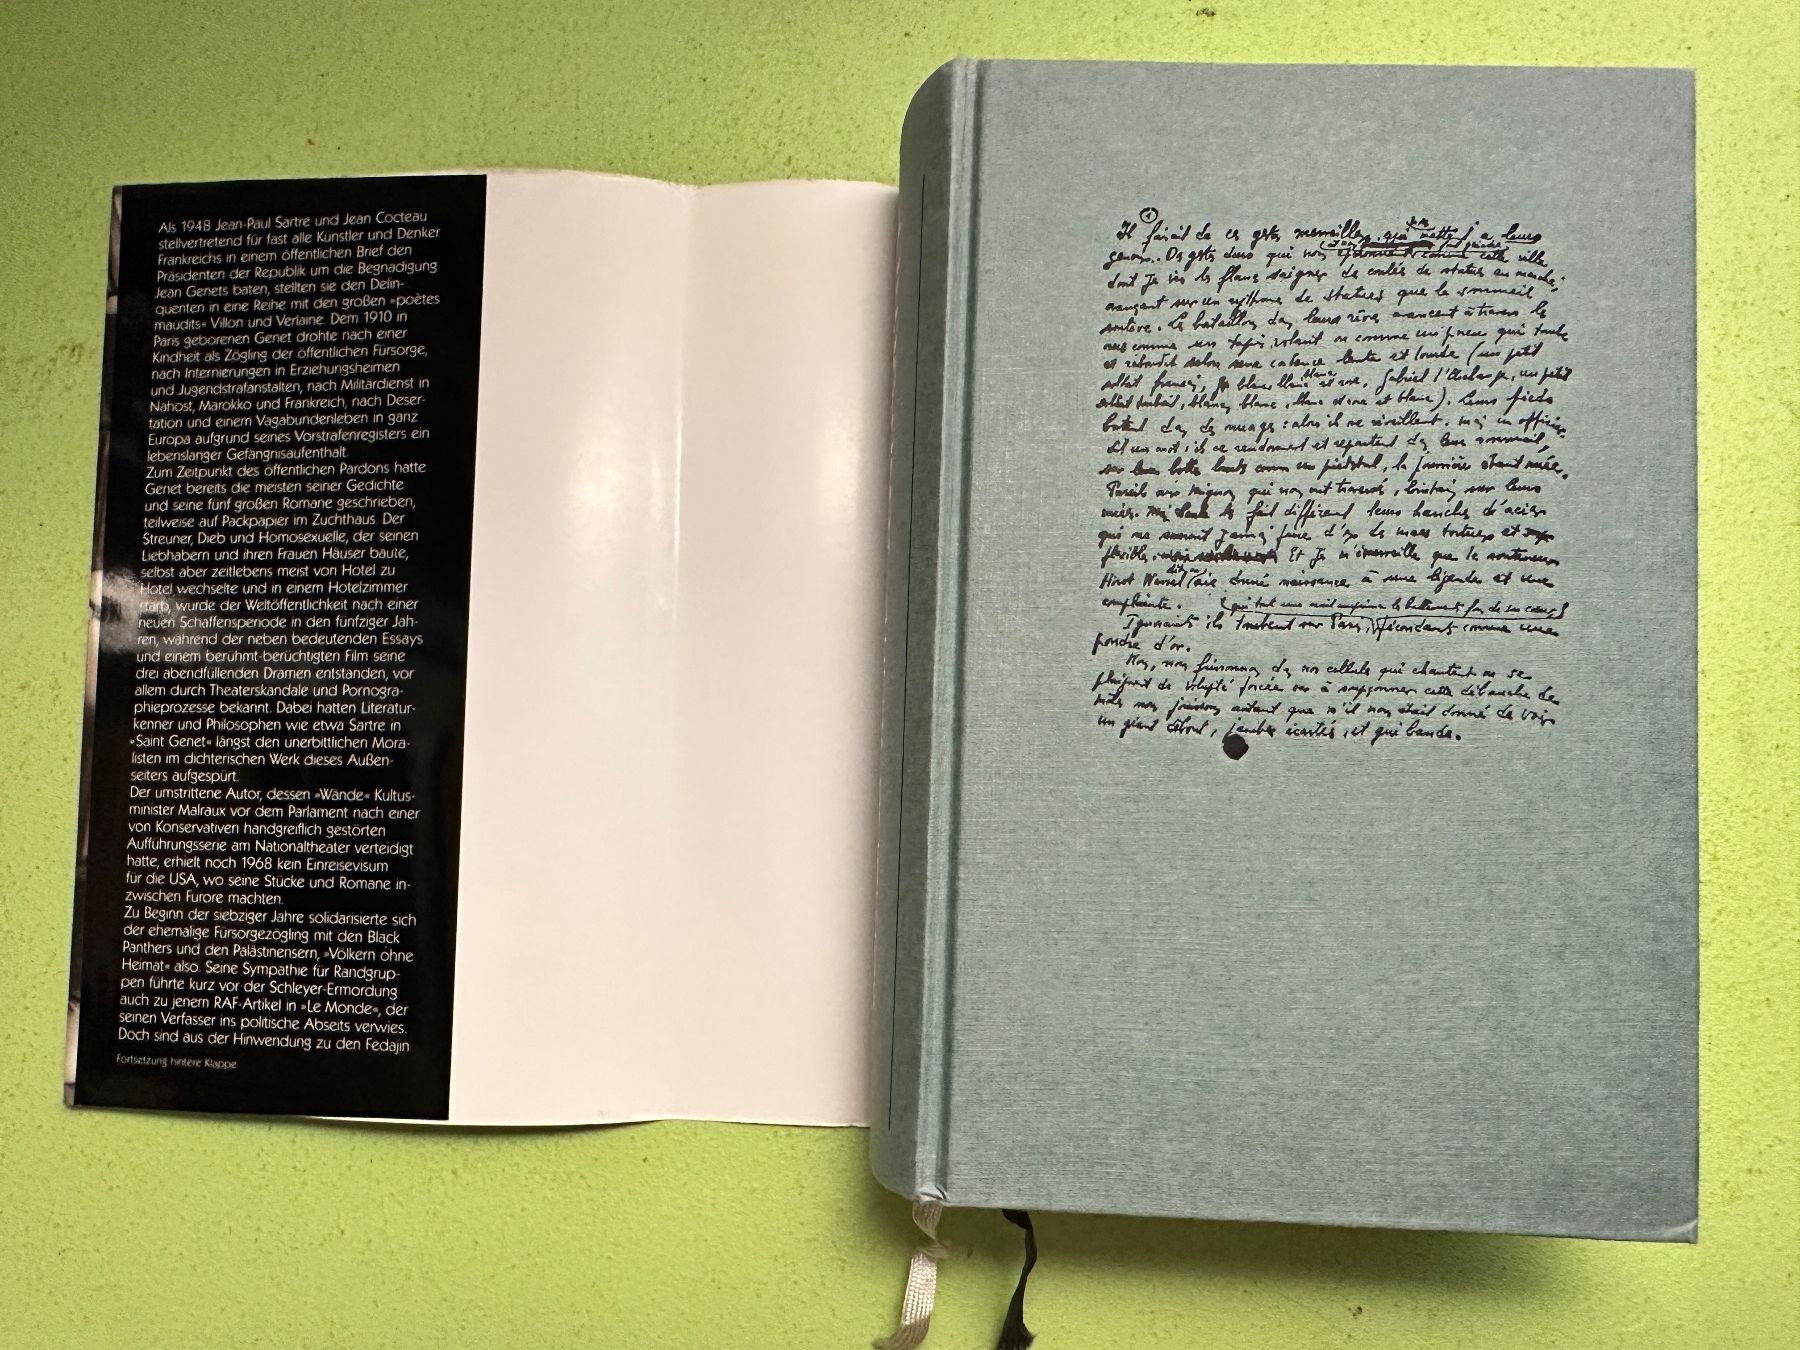 Als 1948 Jean-Paul Sartre und Jean Cocteau
stellvertretend für fast alle Künstler und Denker
Frankreichs in einem öffentlichen Brief den
Präsidenten der Republik um die Begnadigung
Jean Genets baten, stellten sie den Delin-
quenten in eine Reihe mit den großen »poètes
maudits« Villon und Verlaine. Dem 1910 in
Paris geborenen Genet drohte nach einer
Kindheit als Zögling der öffentlichen Fürsorge,
nach Internierungen in Erziehungsheimen
und Jugendstrafanstalten, nach Militärdienst in
Nahost, Marokko und Frankreich, nach Deser-
tation und einem Vagabundenleben in ganz
Europa aufgrund seines Vorstrafenregisters ein
lebenslanger Gefängnisaufenthalt.
Zum Zeitpunkt des öffentlichen Pardons hatte
Genet bereits die meisten seiner Gedichte
und seine fünf großen Romane geschrieben,
teilweise auf Packpapier im Zuchthaus. Der
Streuner, Dieb und Homosexuelle, der seinen
Liebhabern und ihren Frauen Häuser baute,
selbst aber zeitlebens meist von Hotel zu
Hotel wechselte und in einem Hotelzimmer
starb, wurde der Weltöffentlichkeit nach einer
neuen Schaffensperiode in den fünfziger Jah-
ren, während der neben bedeutenden Essays
und einem berühmt-berüchtigten Film seine
drei abendfüllenden Dramen entstanden, vor
allem durch Theaterskandale und Pornogra-
phieprozesse bekannt. Dabei hatten Literatur-
kenner und Philosophen wie etwa Sartre in
»Saint Genet« längst den unerbittlichen Mora-
listen im dichterischen Werk dieses Außen-
seiters aufgespürt.
Der umstrittene Autor, dessen »Wände« Kultus-
minister Malraux vor dem Parlament nach einer
von Konservativen handgreiflich gestörten
Aufführungsserie am Nationaltheater verteidigt
hatte, erhielt noch 1968 kein Einreisevisum
für die USA, wo seine Stücke und Romane in-
zwischen Furore machten.
Zu Beginn der siebziger Jahre solidarisierte sich
der ehemalige Fürsorgezögling mit den Black
Panthers und den Palästinensern, »Völkern ohne
Heimat« also. Seine Sympathie für Randgrup-
pen führte kurz vor der Schleyer-Ermordung
auch zu jenem RAF-Artikel in »Le Monde«, der
seinen Verfasser ins politische Abseits verwies.
Doch sind aus der Hinwendung zu den Fedajin
Fortsetzung hintere Klappe
1
Il de ces gestes
qui nous cette ville
dont je vis les flancs saigner de coulés de statues en marche,
avançant sur un rythme de statues que le sommeil
soulève. Les bataillons dans leurs rêves avancent à travers les
comme un tapis volant ou comme un pneu qui tombe
et rebondit selon une cadence lente et lourde (un petit
soldat français, blanc, Gabriel l'Écharpe, un petit
soldat blanc, blanc et blanc). Leurs pieds
butent dans des nuages: alors ils se réveillent. mais un officier
dit un mot: ils se rendorment et repartent dans leur sommeil,
sur leurs bottes lourdes comme un piédestal, la poussière étant
Pareils aux Mignons qui nous ont traversés, lointains sur leurs
les fait différents leurs hanches d'acier
qui ne sauront jamais faire d'eux des macs tortueux et
flexibles. Et je m'émerveille que le souteneur
Horst Wessel dit-on, aie donné naissance à une légende et une
complainte.
Ignorants ils tombent sur Paris, fécondants comme une
poudre d'or.
nous frissonnons dans nos cellules qui chantent ou se
plaignent de volupté forcée car à soupçonner cette débauche de
mâles nous jouissons autant que s'il nous était donné de voir
un géant debout, jambes écartées, et qui bande.